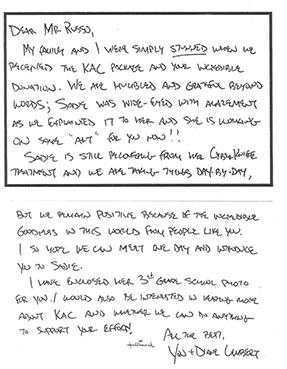 DEAR MR. RUSSO,
MY FAMILY AND I WERE SIMPLY STUNNED WHEN WE
RECEIVED THE KAC PACKAGE AND YOUR INCREDIBLE
DONATION. WE ARE HUMBLED AND GRATEFUL BEYOND
WORDS; SADIE WAS WIDE-EYED WITH AMAZEMENT
AS WE EXPLAINED IT TO HER AND SHE IS WORKING
ON SOME "ART" FOR YOU NOW!!
SADIE IS STILL RECOVERING FROM HER CYBERKNIFE
TREATMENT AND WE ARE TAKING THINGS DAY-BY-DAY,
BUT WE REMAIN POSITIVE BECAUSE OF THE INCREDIBLE
GOODNESS IN THIS WORLD FROM PEOPLE LIKE YOU.
I SO HOPE WE CAN MEET ONE DAY AND INTRODUCE
YOU TO SADIE.
I HAVE ENCLOSED HER 3RD GRADE SCHOOL PHOTO
FOR YOU. I WOULD ALSO BE INTERESTED IN HEARING MORE
ABOUT KAC AND WHETHER WE CAN DO ANYTHING
TO SUPPORT YOUR EFFORT!
ALL THE BEST,
Hallmark
+ DIANE